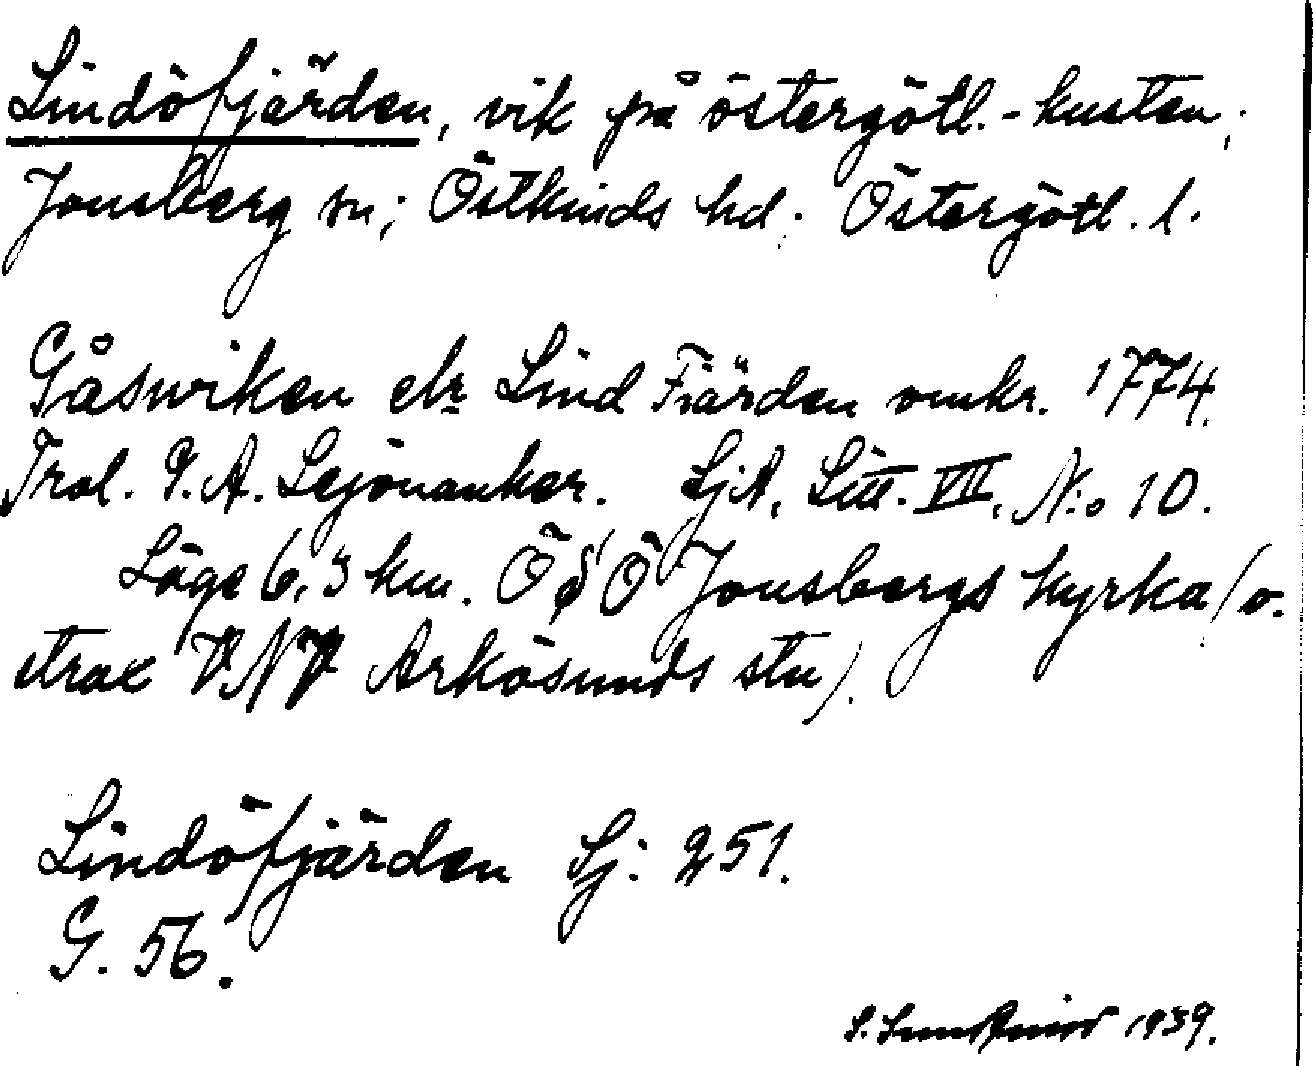 Lindöfjärden, vik på östergötl.-kusten;
Jonsberg sn; Östkinds hd. Östergötl. l.
Gåswiken elr Lind Fiärden omkr. 1774.
Trol. G. A. Lejonanker. SjA, Litt. VII, N:o 10.
Läge 6,3 km. Ö§Ö Jonsbergs kyrka (o.
strax VNV Arkösunds stn).
Lindöfjärden Sj: 251.
G. 56.
S. 1939.